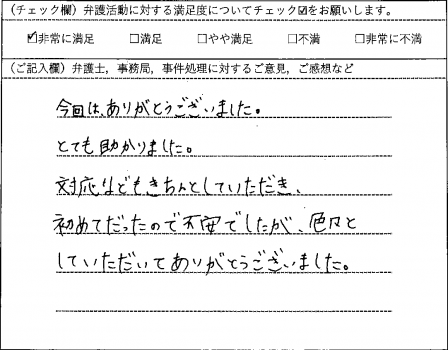 (チェック欄) 弁護活動に対する満足度についてチェック☑をお願いします。
☑非常に満足 □満足 □やや満足 □不満 □非常に不満
(ご記入欄) 弁護士，事務局，事件処理に対するご意見，ご感想など
今回は、ありがとうございました。
とても助かりました。
対応などもきちんとしていただき、
初めてだったので不安でしたが、色々と
していただいてありがとうございました。